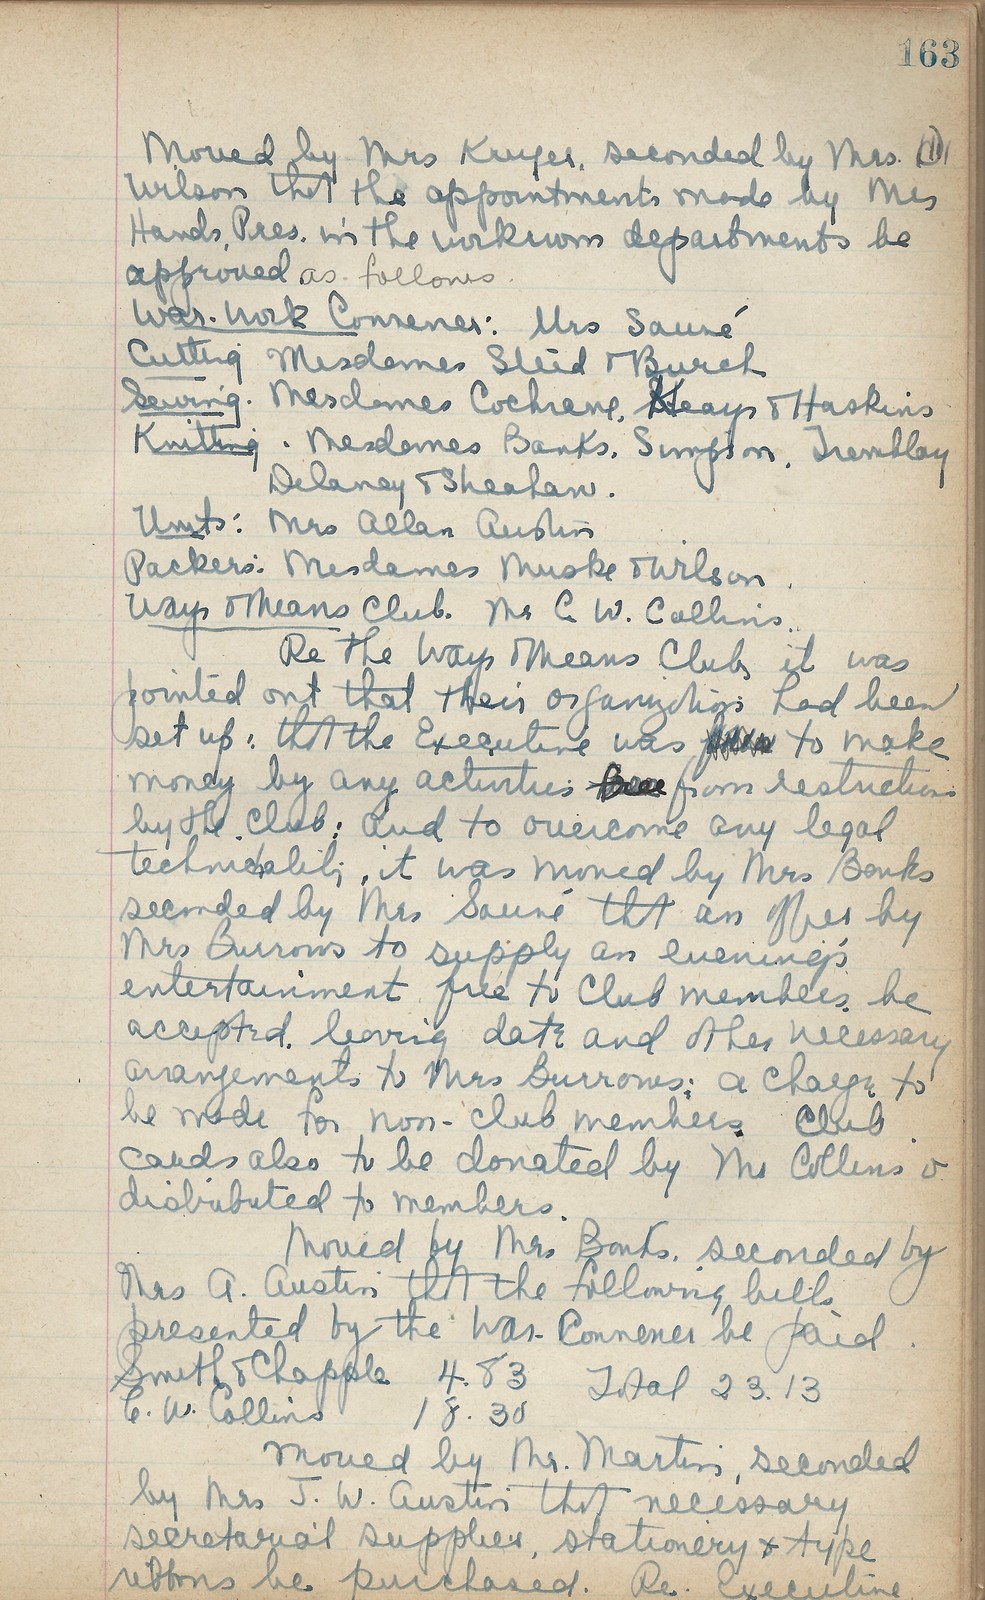 163
Moved by Mrs Kruger, seconded by Mrs. (1)
Wilson tht the appointments made by Mrs
Hands, Pres. in the workroom departments be
approved as follows
War-Work Convener: Mrs Sauvé
Cutting Mesdames Sleid & Burch
Sewing. Mesdames Cochrane, Heays & Haskins
Knitting. Mesdames Banks, Simpson, Tremblay
Delaney & Sheahan.
Units: Mrs Allan Austin
Packers: Mesdames Muske & Wilson.
Ways & Means Club. Mr C. W. Collins.
Re the Ways & Means Club, it was
pointed out that their organization had been
set up: tht the Executive was to make
money by any activities from restrictions
by the Club; and to overcome any legal
technicality, it was moved by Mrs Banks
seconded by Mrs Sauvé tht an offer by
Mrs Burrows to supply an evening's
entertainment free to Club members be
accepted, leaving date and other necessary
arrangements to Mrs Burrows; a charge to
be made for non-club members. Club
cards also to be donated by Mr Collins &
distributed to members.
Moved by Mrs Banks, seconded by
Mrs A. Austin tht the following bills
presented by the War Convener be paid.
Smith & Chapple 4.83 Total 23.13
C. W. Collins 18.30
Moved by Mr. Martin, seconded
by Mrs J. W. Austin tht necessary
secretarial supplies, stationery & type
ribbons be purchased. Re. Executive